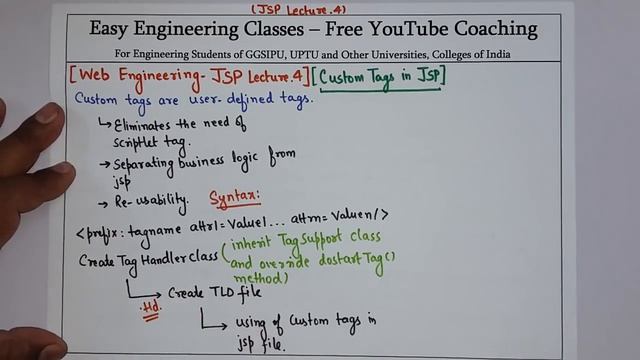 (JSP Lecture.4)
Easy Engineering Classes – Free YouTube Coaching
For Engineering Students of GGSIPU, UPTU and Other Universities, Colleges of India
[Web Engineering- JSP Lecture.4] [Custom Tags in JSP]
Custom tags are user-defined tags.
↳ Eliminates the need of
scriptlet tag.
→ Separating business logic from
jsp
→ Re-usability.
Syntax:
<prefix: tagname attr1=Value1... attrn=Valuen/>
Create Tag Handler class (inherit TagSupport class
and override dostartTag()
method)
↳ Create TLD file
.tld.
↳ using of Custom tags in
jsp file.